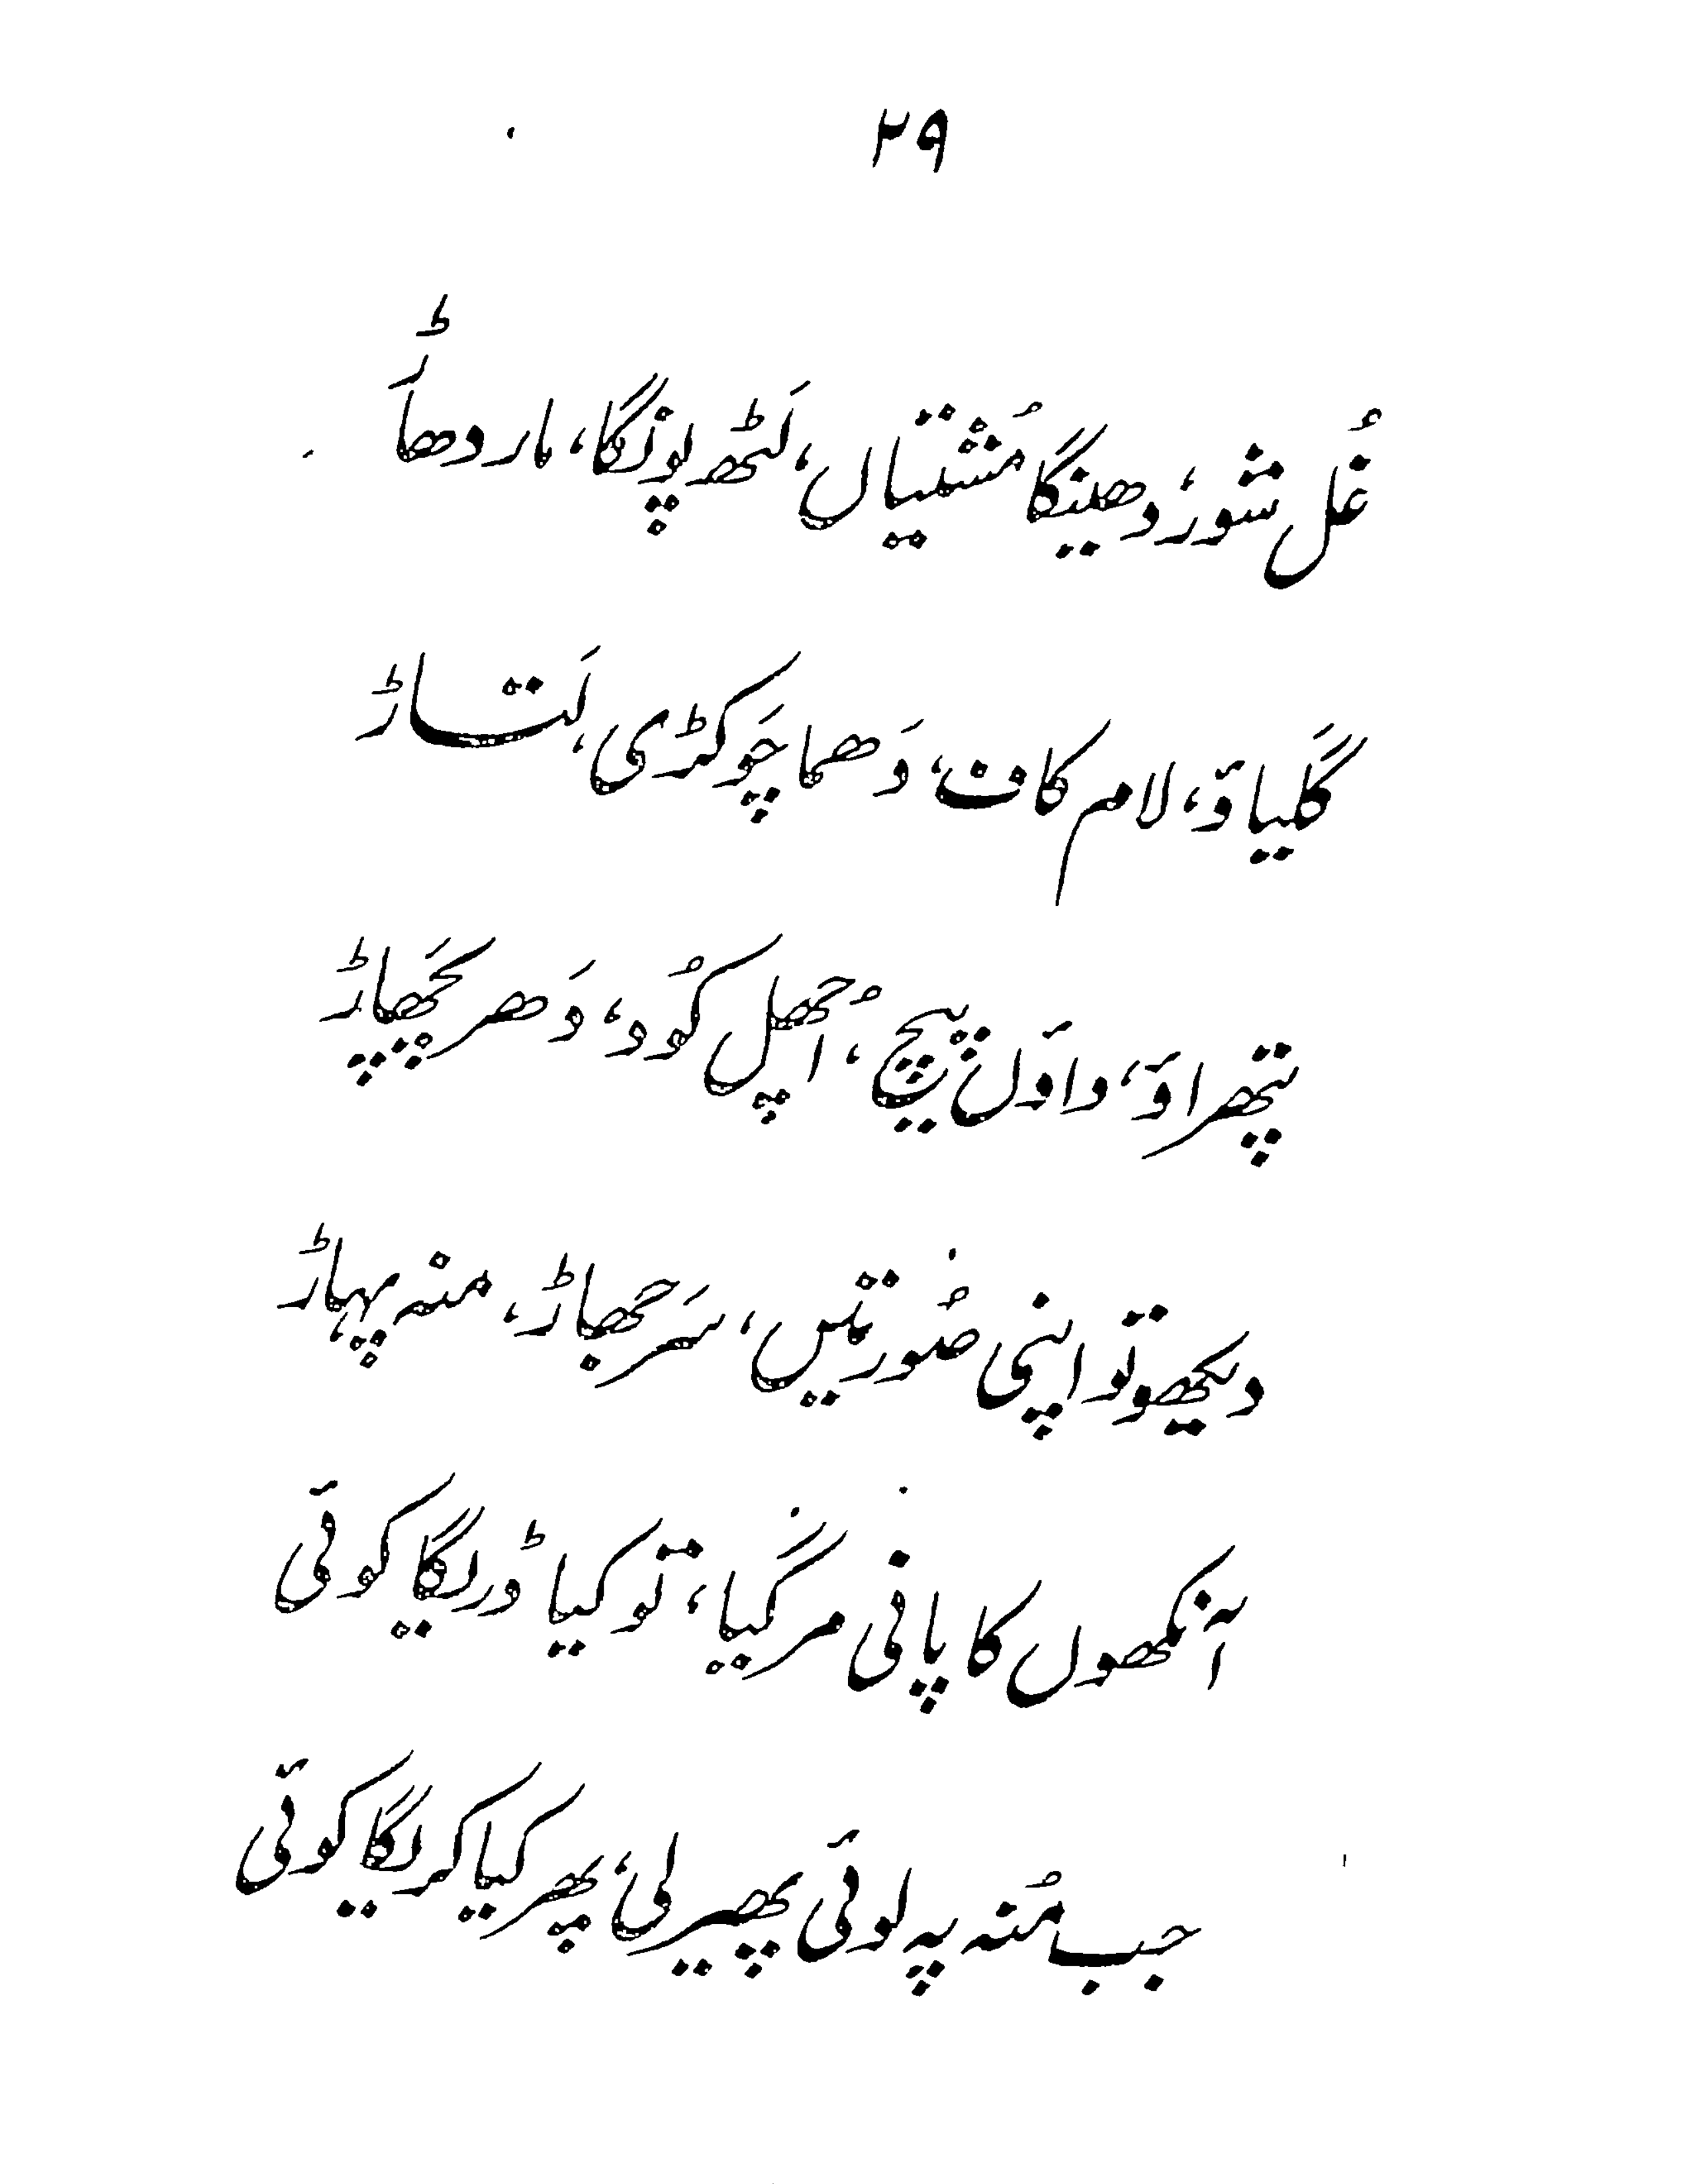 ۲۹
غُل شور، دھینگا مُشتیاں، لَٹھ پونگا، مار دھاڑ
گَلیاؤ، لام کاف، دَھما چَوکڑی، لَتاڑ
پتھراؤ، داؤں پیچ، اُچھل کُود، دَھر پَچھاڑ
دیکھو تو اپنی صُورتیں، سَر جَھاڑ، منہ پہاڑ
آنکھوں کا پانی مر گیا، تو کیا ڈریگا کوئی
جب مُنہ پہ لوئی پھیر لی، پھر کیا کریگا کوئی